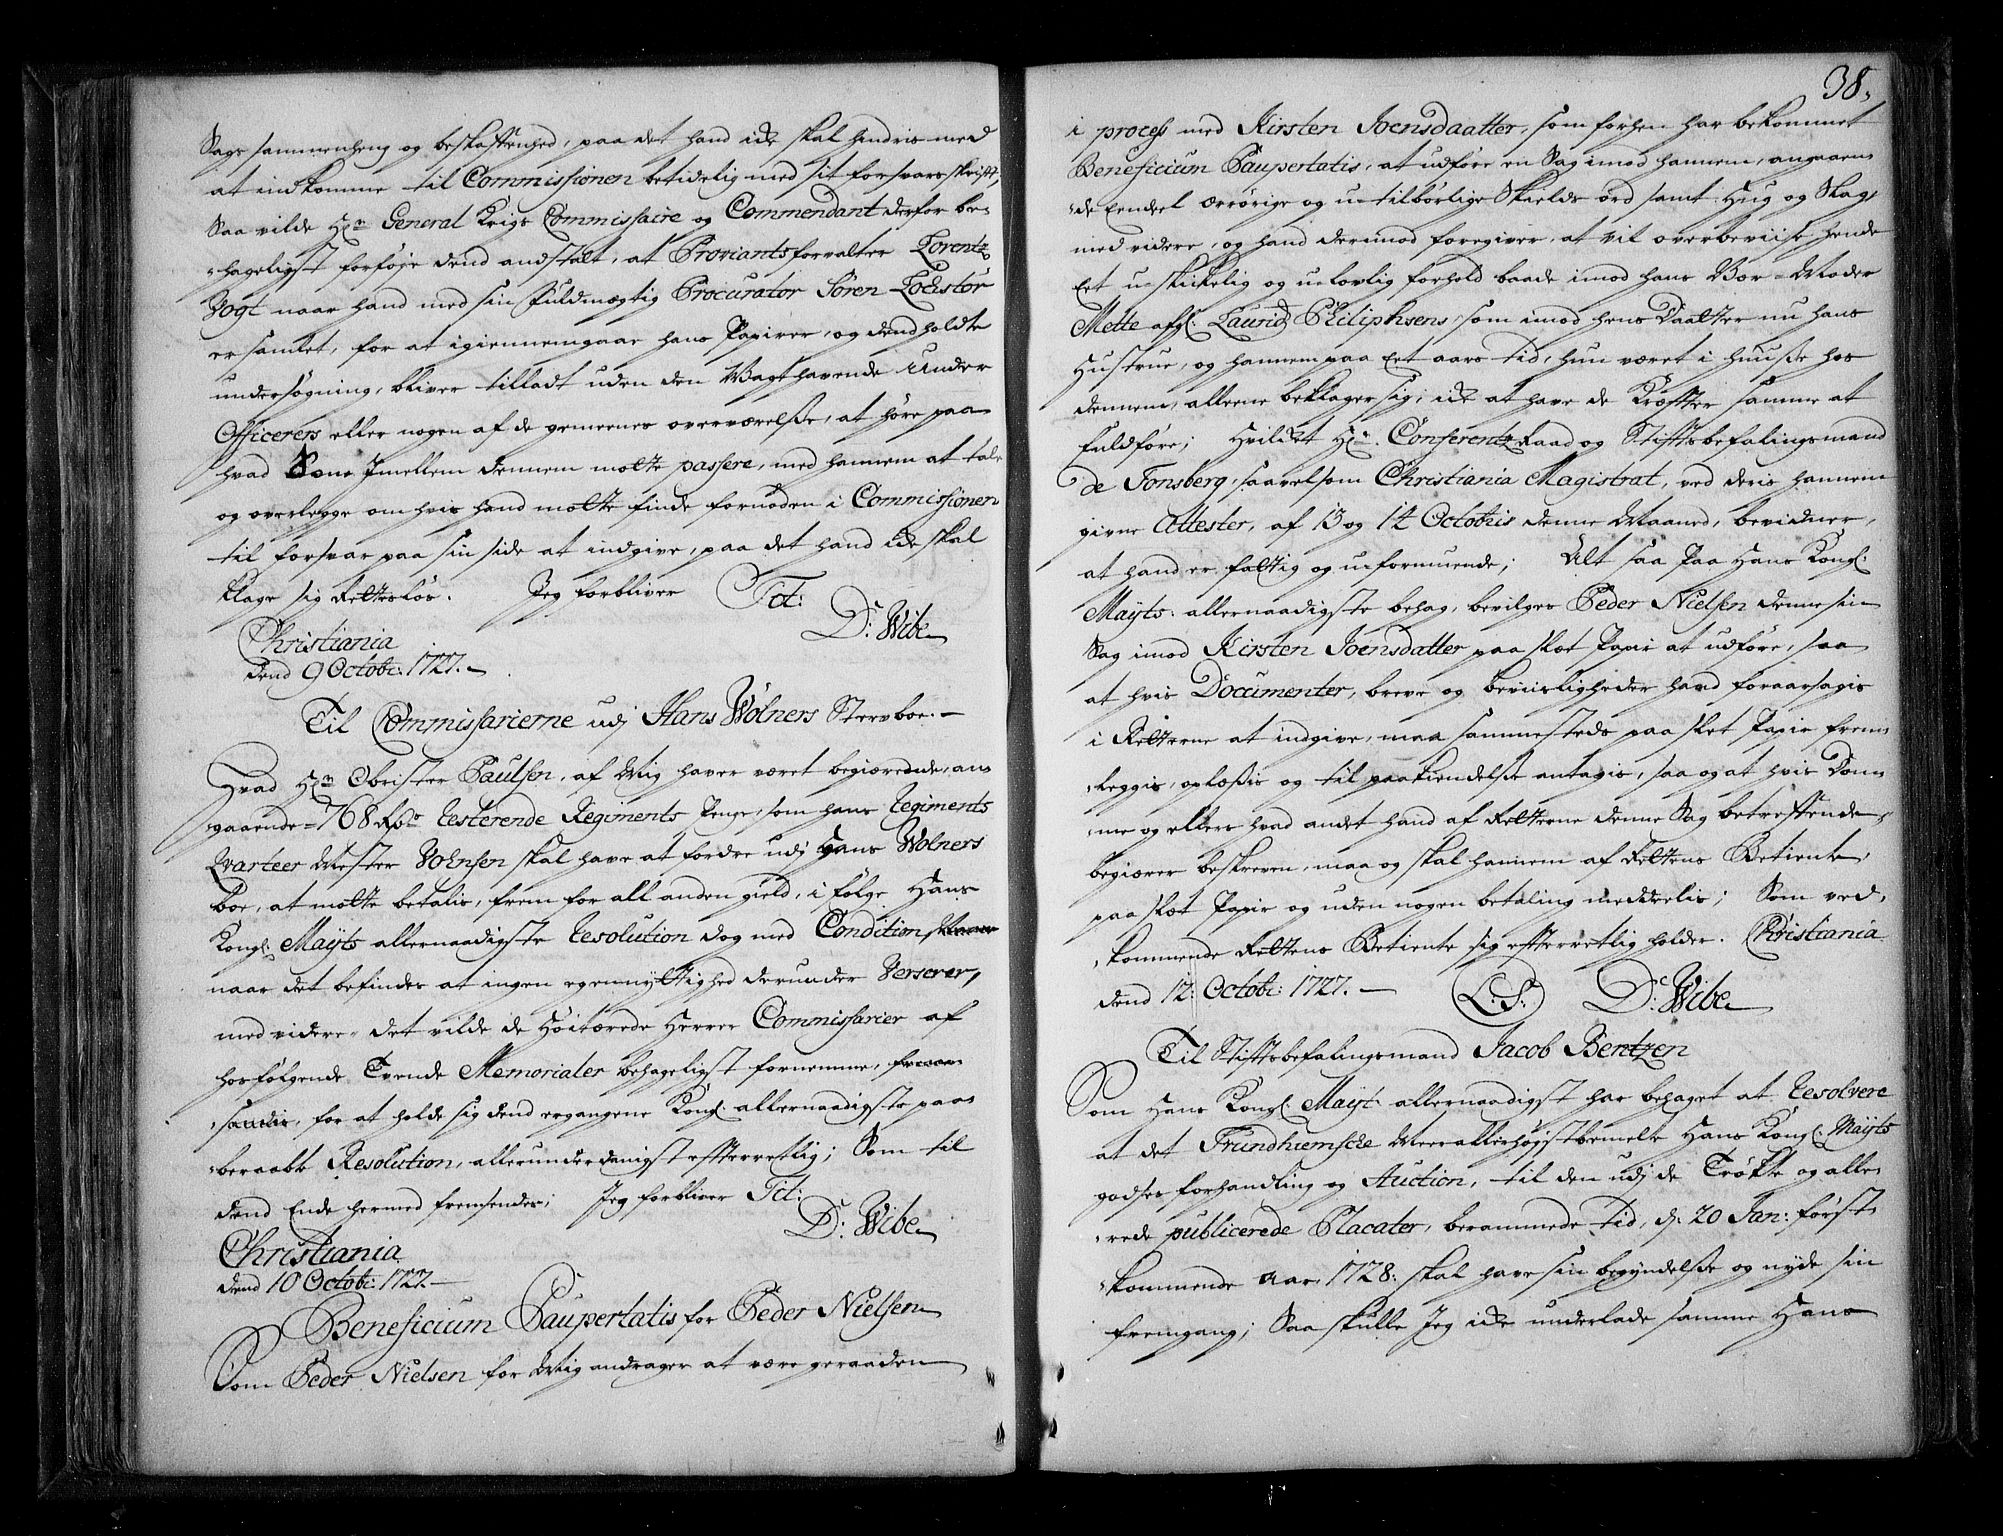 Sags sammenheng og beskaffenhed, paa det hand icke skal hindris med
at indkomme til Commissionen betidelig med sit forsvars skrift,
Saa vilde Hr. General Krigs Commissaire og Commendant derfor be-
hageligst forføje dend anstalt, at Proviantsforvalter Lorentz
Vogt naar hand med sin Fuldmægtig Procurator Søren Lochstør
er samlet, for at igiennemgaae hans Papirer, og dend holdte
undersøgning, bliver tilladt uden den Vagthavende Under
Officerers eller nogen af de gemeenes overværelse, at høre paa
hvad som Imellem dennem motte passere, med hannem at tale
og overlegge om hvis hand motte finde fornøden i Commissionen
til forsvar paa sin side at indgive, paa det hand icke skal
klage sig Rettesløs. Jeg forbliver Tit:
D: Wibe
Christiania
dend 9 Octobr: 1727.
Til Commissarierne udj Hans Wølners Sterboe.
Hvad Hr. Obrister Paulsen, af Mig haver været begiærende, an-
gaaende 768 Rdr. resterende Regiments Penge, som hans Regiments
Qvarteer Mester Johnsen skal have at fordre udj Hans Wolners
boe, at motte betalis, frem for all anden gield, i følge Hans
Kongl: Mayts allernaadigste Resolution dog med Condition,
naar det befindes at ingen egennyttighed derunder Verserer,
med videre det vilde de Høitærede Herrer Commissarier af
hosfølgende Tvende Memorialer behageligst fornemme,
for at holde sig dend ergangene Kongl: allernaadigste paa-
beraabte Resolution, allerunderdanigst efterretlig; Som til
dend Ende hermed fremsendes; Jeg forbliver Tit:
D: Wibe
Christiania
dend 10 Octobr: 1727.
Beneficium Paupertatis for Peder Nielsen
Som Peder Nielsen for Mig andrager at være geraaden
38.
i process med Kirsten Joensdaatter, som forhen har bekommet
Beneficium Paupertatis, at udføre en Sag imod hannem, angaaen-
de Eendeel ærrørige og u-tilbørlige Skields ord samt Hug og Slag,
med videre, og hand derimod foregiver, at vil overbeviise hende
Eet u-skickelig og ulovlig forhold baade imod hans Vær-Moder
Mette afgl: Laurids Philiphsens, som imod hens Daatter nu hans
Hustrue, og hannem paa Eet aars tid, hun været i huuse hos
dennem, alleene beklager sig, icke at have de Kræffter samme at
fuldføre; Hvilket Hr. Conferentz Raad og Stifftsbefalingsmand
de Tonsberg, saavelsom Christiania Magistrat, ved deris hannem
givne Attester, af 13 og 12 Octobris denne Maaned, bevidner,
at hand er fattig og u-formuende; Alt saa Paa Hans Kongl:
Mayts: allernaadigste behag, bevilges Peder Nielsen denne sin
Sag imod Kirsten Joensdatter paa slæt Papir at udføre, saa
at hvis Documenter, breve og beviisligheder hand foraarsagis
i Retterne at indgive, maa sammesteds paa slet Papir frem-
leggis, oplæsis og til paakiendelse antagis, saa og at hvis Dom-
me og ellers hvad andet hand af Retterne denne Sag betreffende
begiærer beskreven, maa og skal hannem af Rettens Betiente,
paa slæt Papir og uden nogen betaling meddeelis; Som ved-
kommende Rettens Betiente sig efterretlig holder. Christiania
dend 12: Octobr: 1727. L:S: D: Wibe
Til Stifftsbefalingsmand Jacob Bentzen
Som Hans Kongl: Mayt allernaadigst har behaget at Resolvere
at det Trundhiemsche Meer allerhøjst bemelte Hans Kongl: Mayts
godses forhandling og Auction, til den udj de Trøkte og alle-
rede publicerede Placater, berammede tid, d: 20 Jan: først-
kommende Aar, 1728: skal have sin begyndelse og nyde sin
fremgang; Saa skulle Jeg icke underlade samme Hans